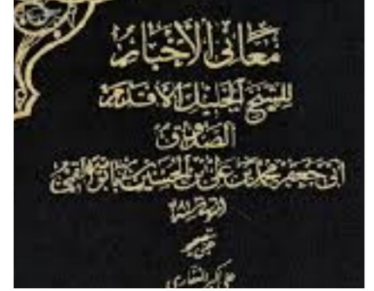 معاني الأخبار
للشيخ الجليل الأقدم
الصدوق
أبي جعفر محمد بن علي بن الحسين بن بابويه القمي
المتوفى ٣٨١
علي أكبر الغفاري